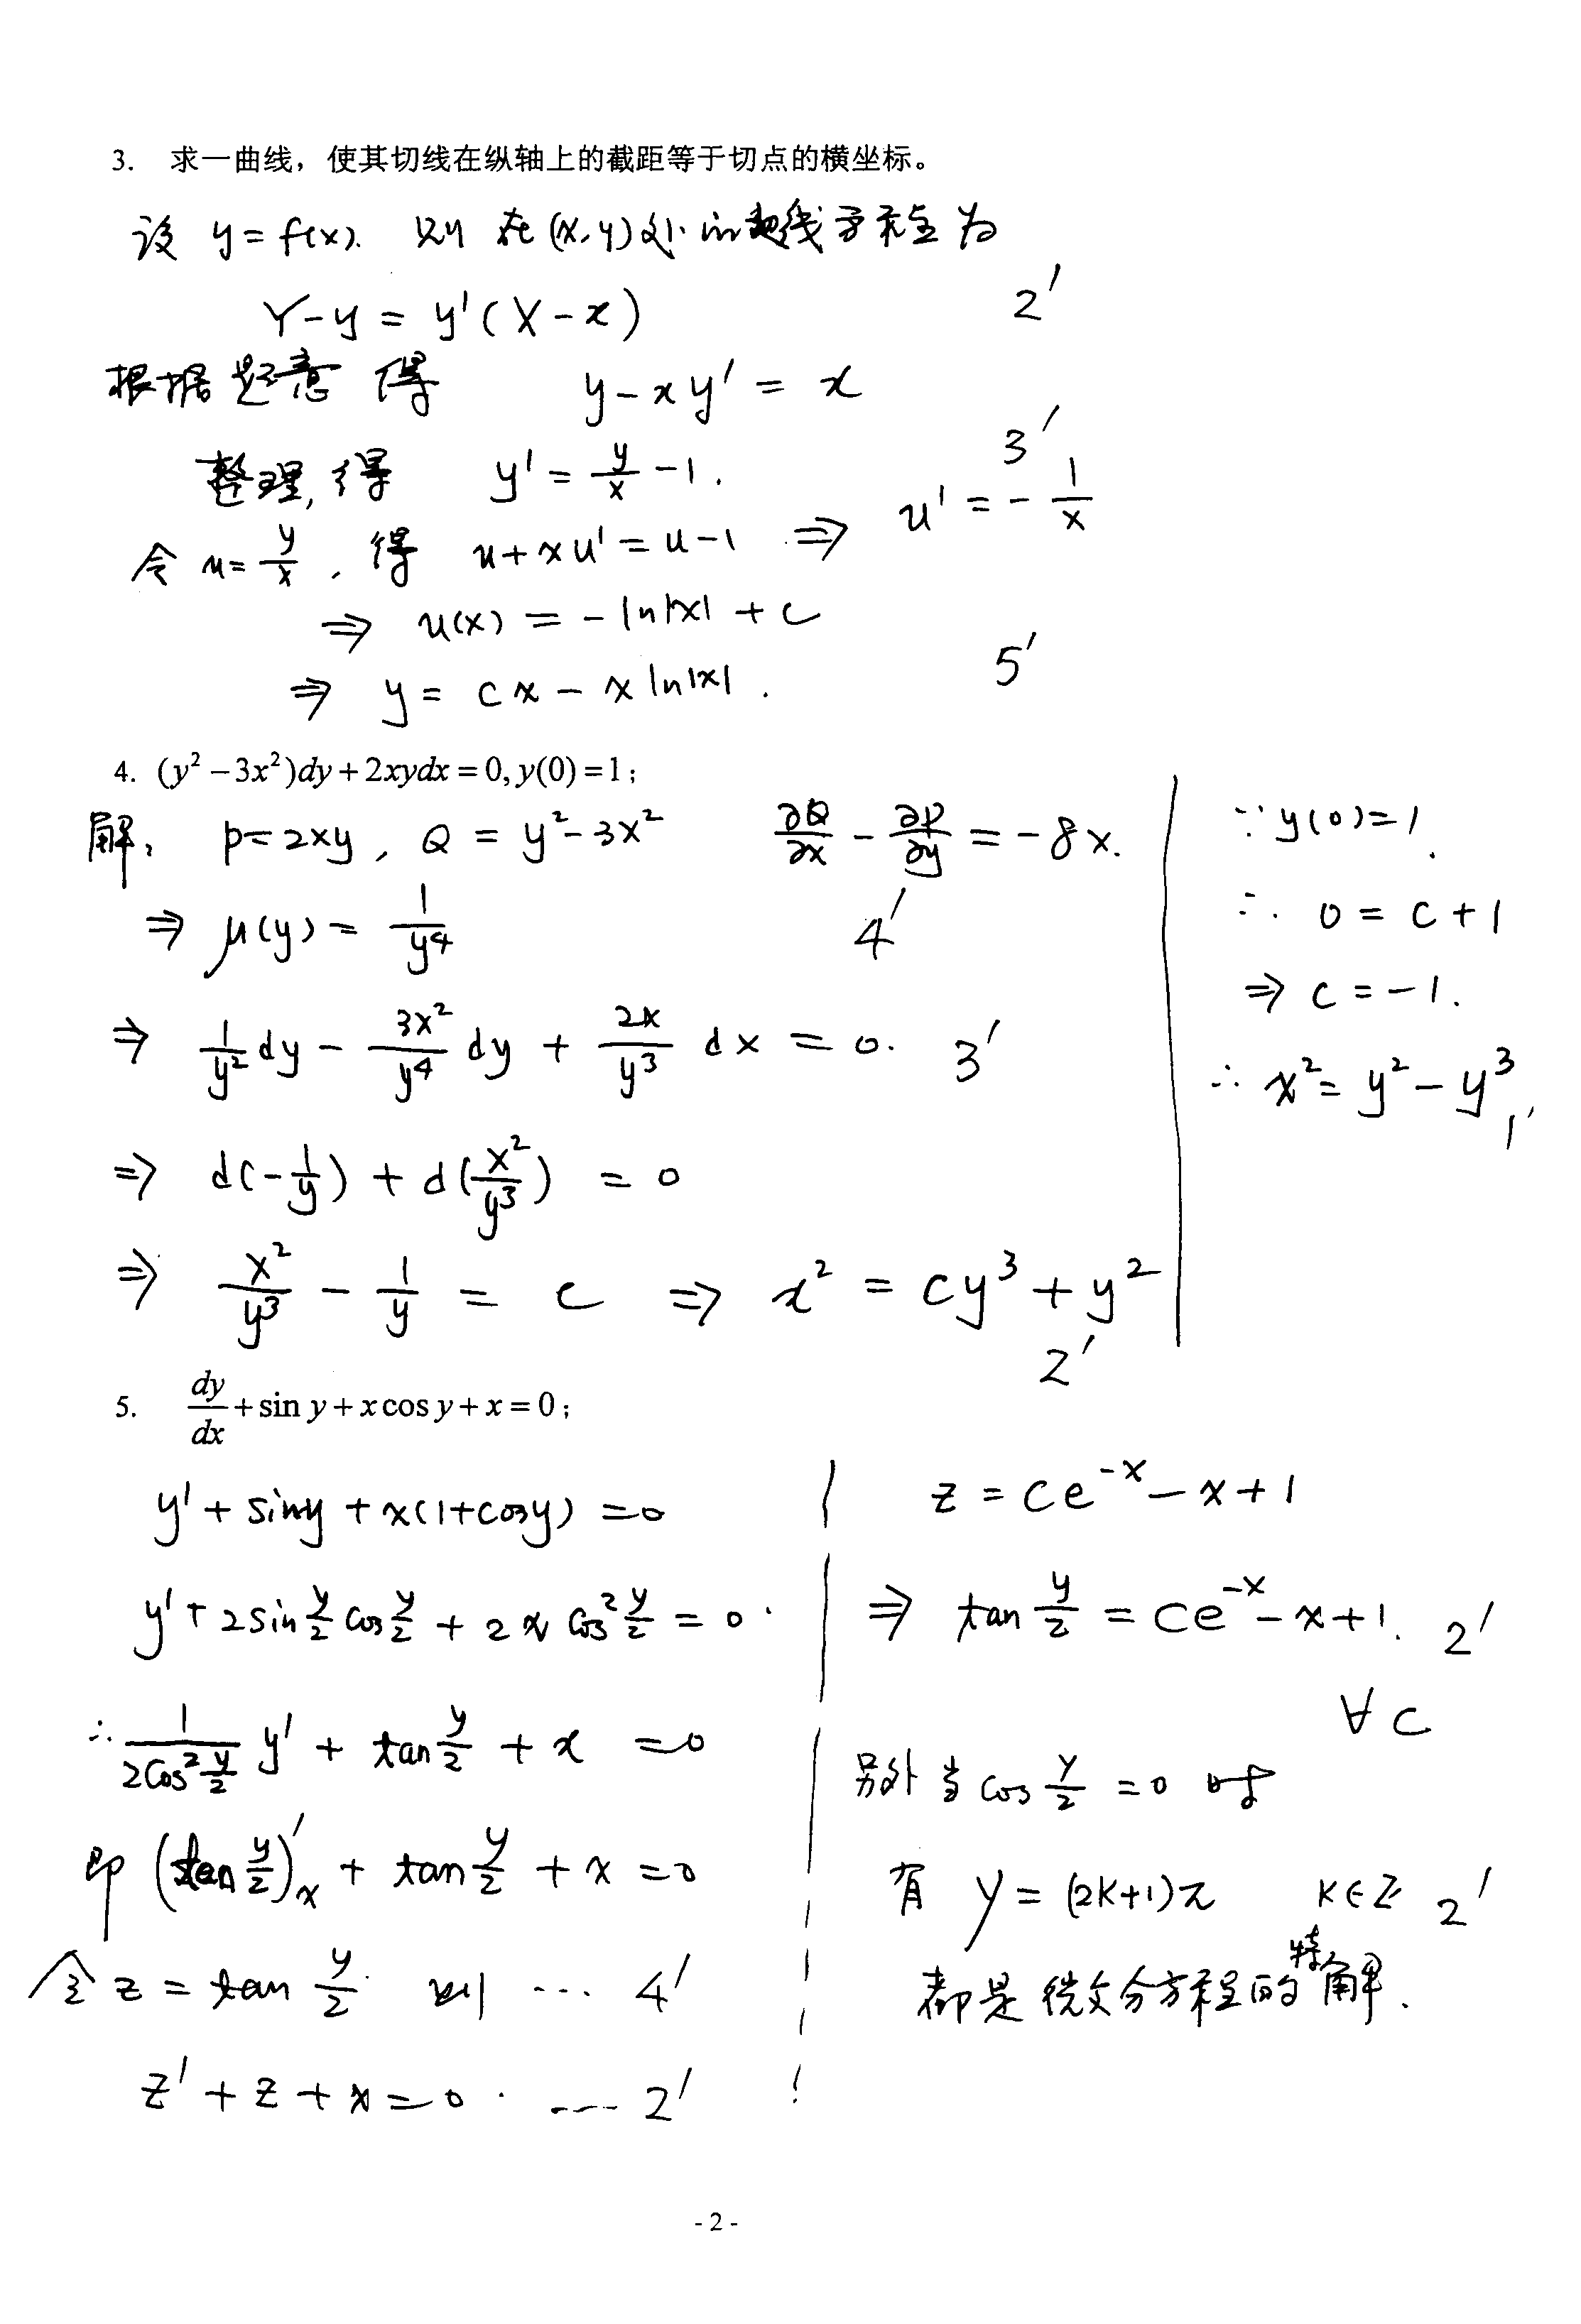 3. 求一曲线，使其切线在纵轴上的截距等于切点的横坐标。
设 y = f(x). 则 在 (x, y) 处 的 切线 方程 为
Y - y = y'(X - x) 2'
根据 题意 得 y - xy' = x
整理, 得 y' = y/x - 1. 3'
令 u = y/x, 得 u + xu' = u - 1 ⇒ u' = - 1/x
⇒ u(x) = - ln|x| + c
⇒ y = cx - x ln|x|. 5'
4. (y² - 3x²)dy + 2xydx = 0, y(0) = 1;
解: P = 2xy, Q = y² - 3x² ∂Q/∂x - ∂P/∂y = -8x.
⇒ μ(y) = 1/y⁴ 4'
⇒ 1/y² dy - 3x²/y⁴ dy + 2x/y³ dx = 0. 3'
⇒ d(-1/y) + d(x²/y³) = 0
⇒ x²/y³ - 1/y = c ⇒ x² = cy³ + y² 2'
∵ y(0) = 1.
∴ 0 = c + 1
⇒ c = -1.
∴ x² = y² - y³ 1'
5. dy/dx + sin y + x cos y + x = 0;
y' + sin y + x(1 + cos y) = 0
y' + 2 sin y/2 cos y/2 + 2x cos² y/2 = 0.
∴ 1/(2cos² y/2) y' + tan y/2 + x = 0
即 (tan y/2)'ₓ + tan y/2 + x = 0
令 z = tan y/2. 则 ... 4'
z' + z + x = 0. ---- 2'
z = ce⁻ˣ - x + 1
⇒ tan y/2 = ce⁻ˣ - x + 1. 2'
∀ c
另外 当 cos y/2 = 0 时
有 y = (2k+1)π k∈Z 2'
都是 微分方程的特解.
- 2 -